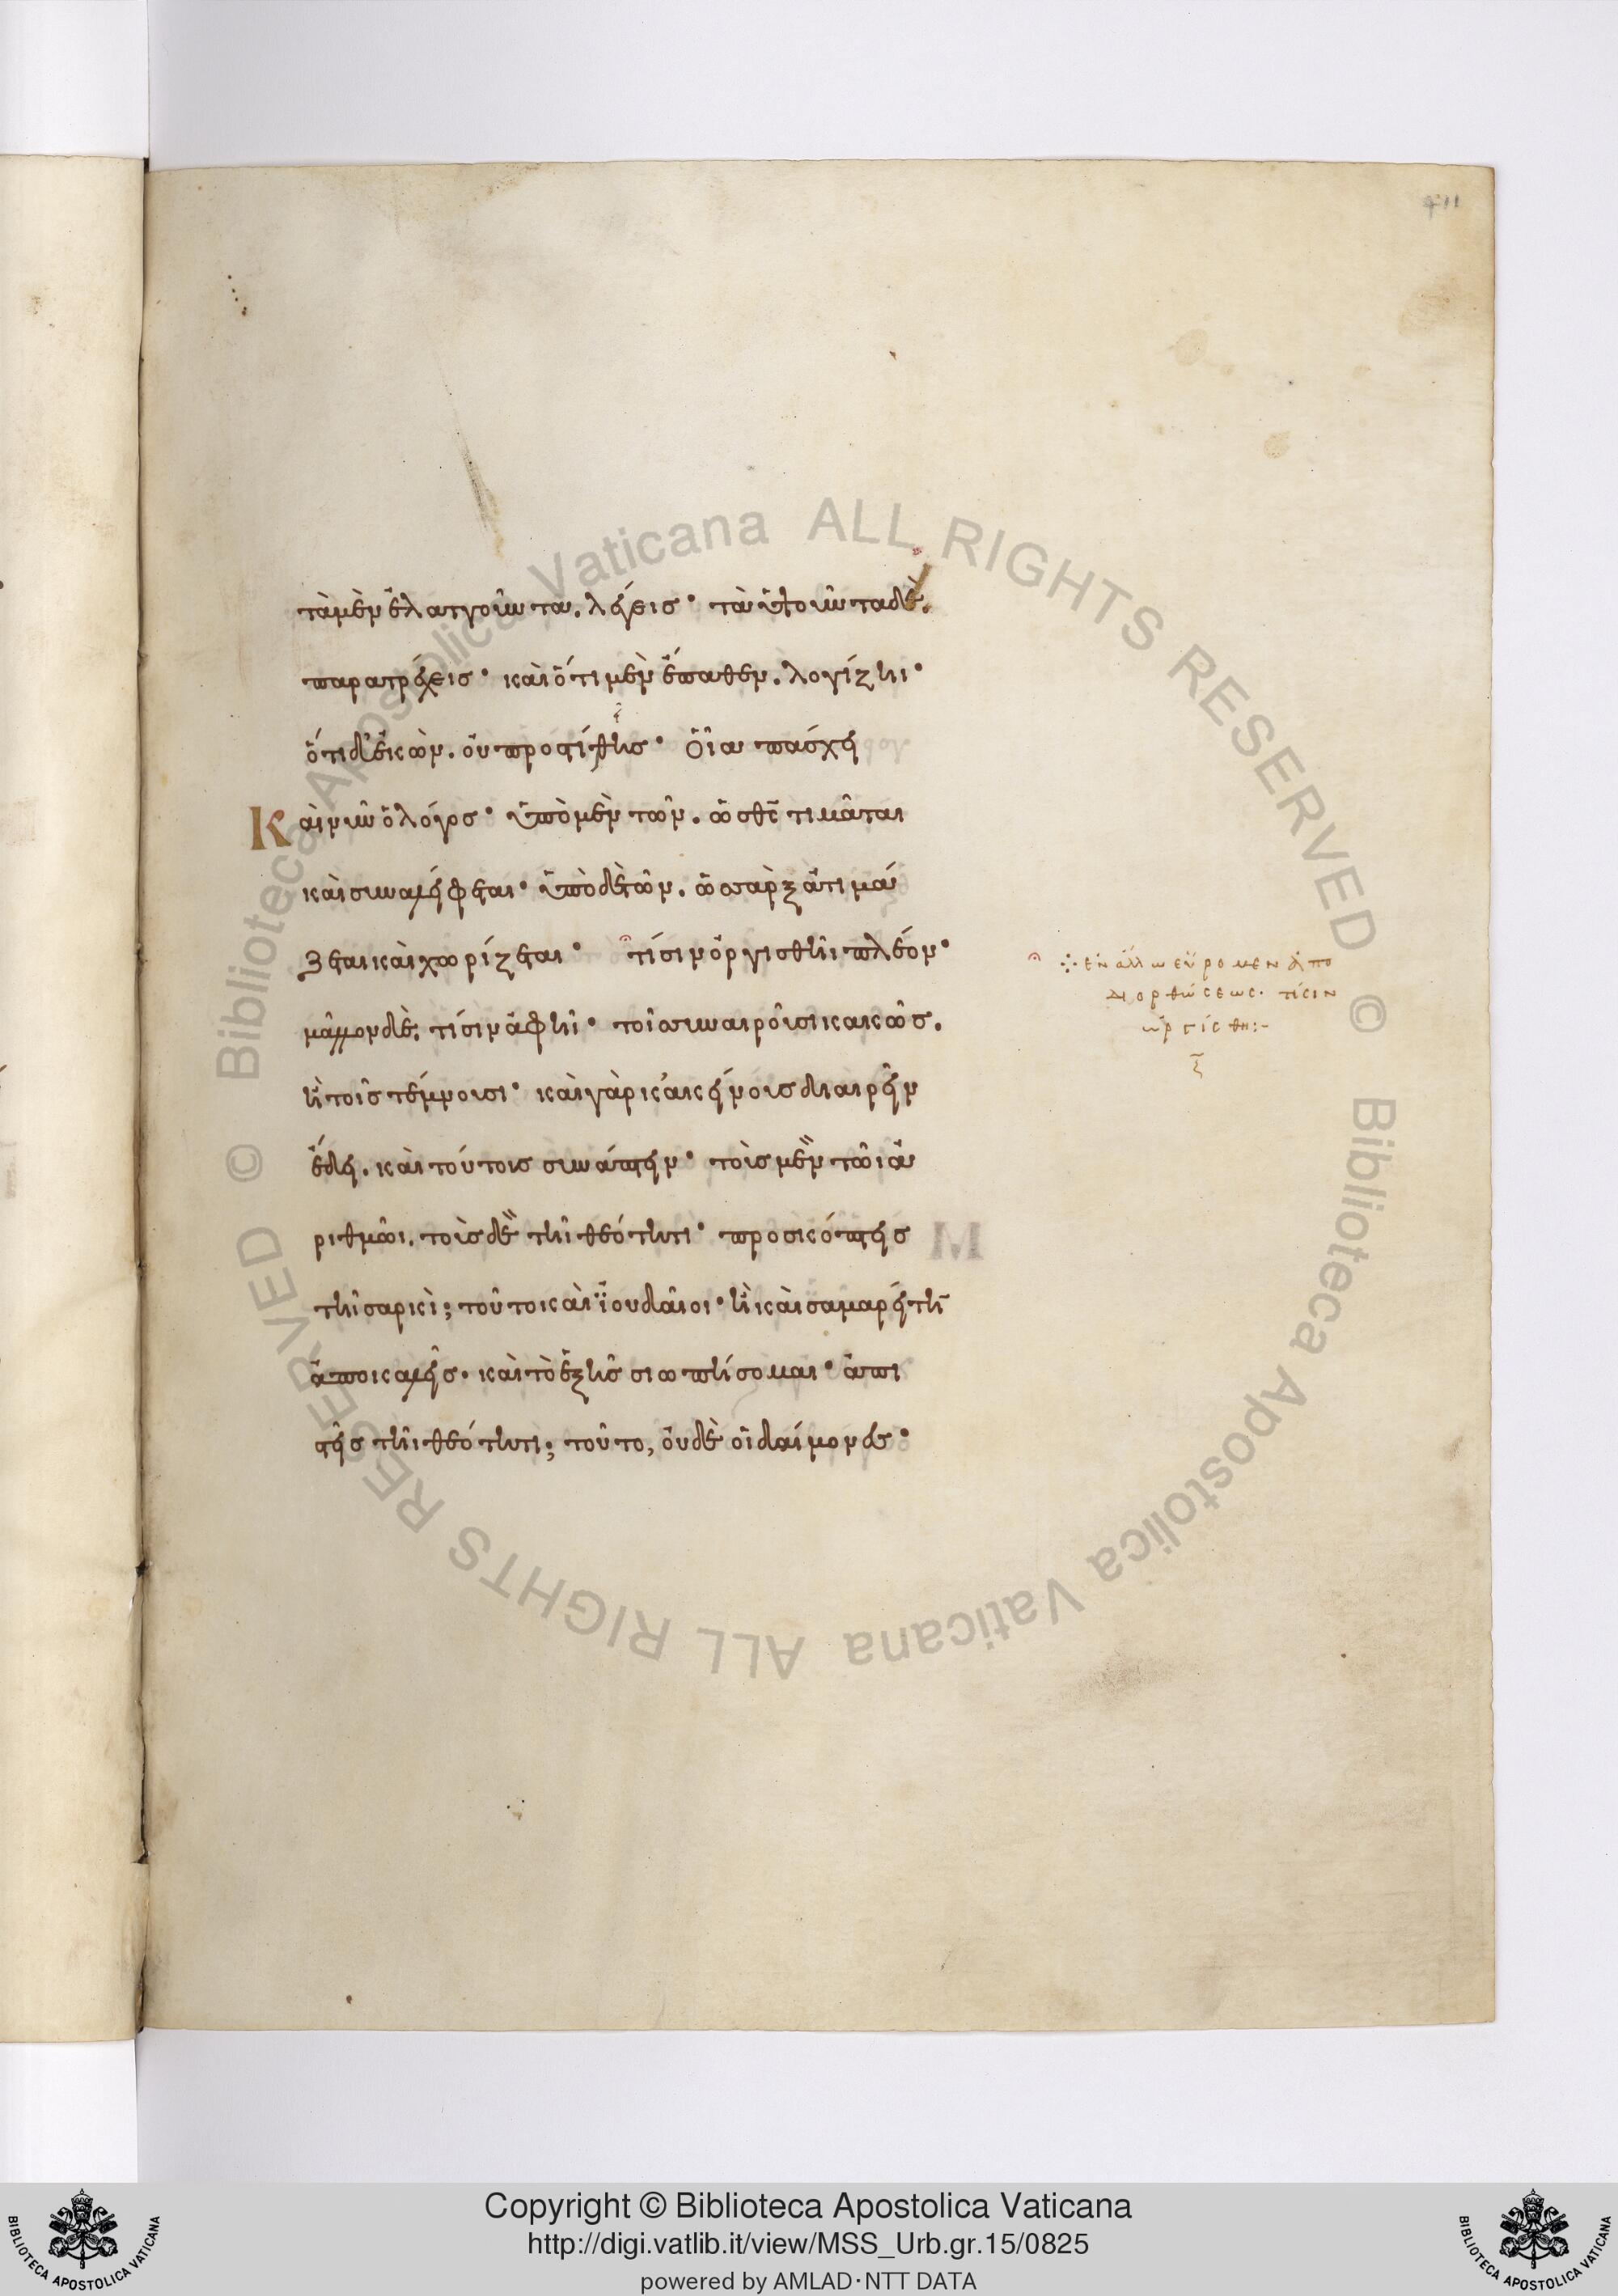 411
τὰ μὲν ἐλαττοῦντα. λέγεις· τὰ ὑψοῦντα δὲ.
παρατρέχεις· καὶ ὅτι μὲν ἔπαθεν. λογίζηι·
ὅτι δ' ἑκὼν. οὐ προστίθης· Οἷα πάσχει
Καὶ νῦν ὁ λόγος· ὑπὸ μὲν τῶν. ὡς θ̅ς̅ τιμᾶται
καὶ συναλείφεται· ὑπὸ δὲ τῶν. ὡς σὰρξ ἀτιμά
ζεται καὶ χωρίζεται· τίσιν ὀργισθῆι πλέον·
μᾶλλον δὲ. τίσιν ἀφῆι· τοῖς συναιροῦσι κακῶς.
ἢ τοῖς τέμνουσι· καὶ γὰρ κἀκείνους διαιρεῖν
ἔδει. καὶ τούτους συνάπτειν· τοὺς μὲν τῶι ἀ
ριθμῶι. τοὺς δὲ τῆι θεότητι· προσκόπτεις
τῆι σαρκὶ; τοῦτο καὶ ϊουδαῖοι· ἢ καὶ σαμαρείτην
ἀποκαλεῖς. καὶ τὸ ἑξῆς σιωπήσομαι· ἀπι
στεῖς τῆι θεότητι; τοῦτο, οὐδὲ οἱ δαίμονες·
ἐν ἄλλω εὕρομεν ἀπὸ
διορθώσεως· τίσιν
ὠργίσθη:-
Copyright © Biblioteca Apostolica Vaticana
http://digi.vatlib.it/view/MSS_Urb.gr.15/0825
powered by AMLAD·NTT DATA
BIBLIOTECA APOSTOLICA VATICANA
BIBLIOTECA APOSTOLICA VATICANA
© Biblioteca Apostolica Vaticana ALL RIGHTS RESERVED
© Biblioteca Apostolica Vaticana ALL RIGHTS RESERVED